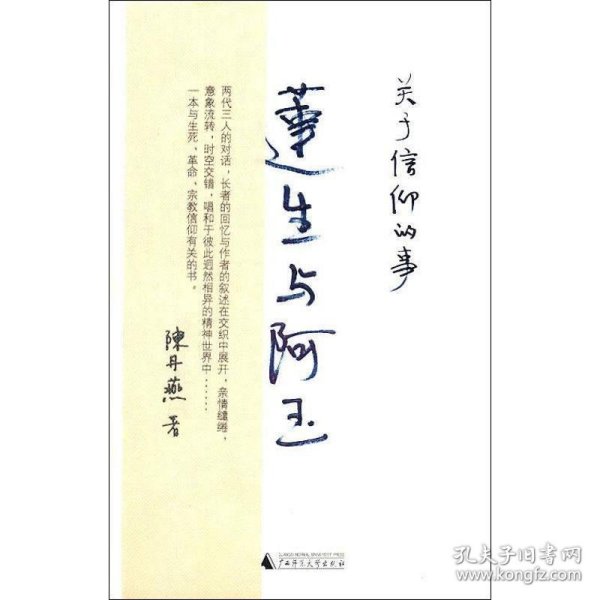 关于信仰的事
蓮生与阿玉
两代三人的对话，长者的回忆与作者的叙述在交织中展开，亲情缱绻，
意象流转，时空交错，唱和于彼此迥然相异的精神世界中……
一本与生死、革命、宗教信仰有关的书。
陳丹燕 著
GUANGXI NORMAL UNIVERSITY PRESS
广西师范大学出版社
孔夫子旧书网
www.kongfz.com